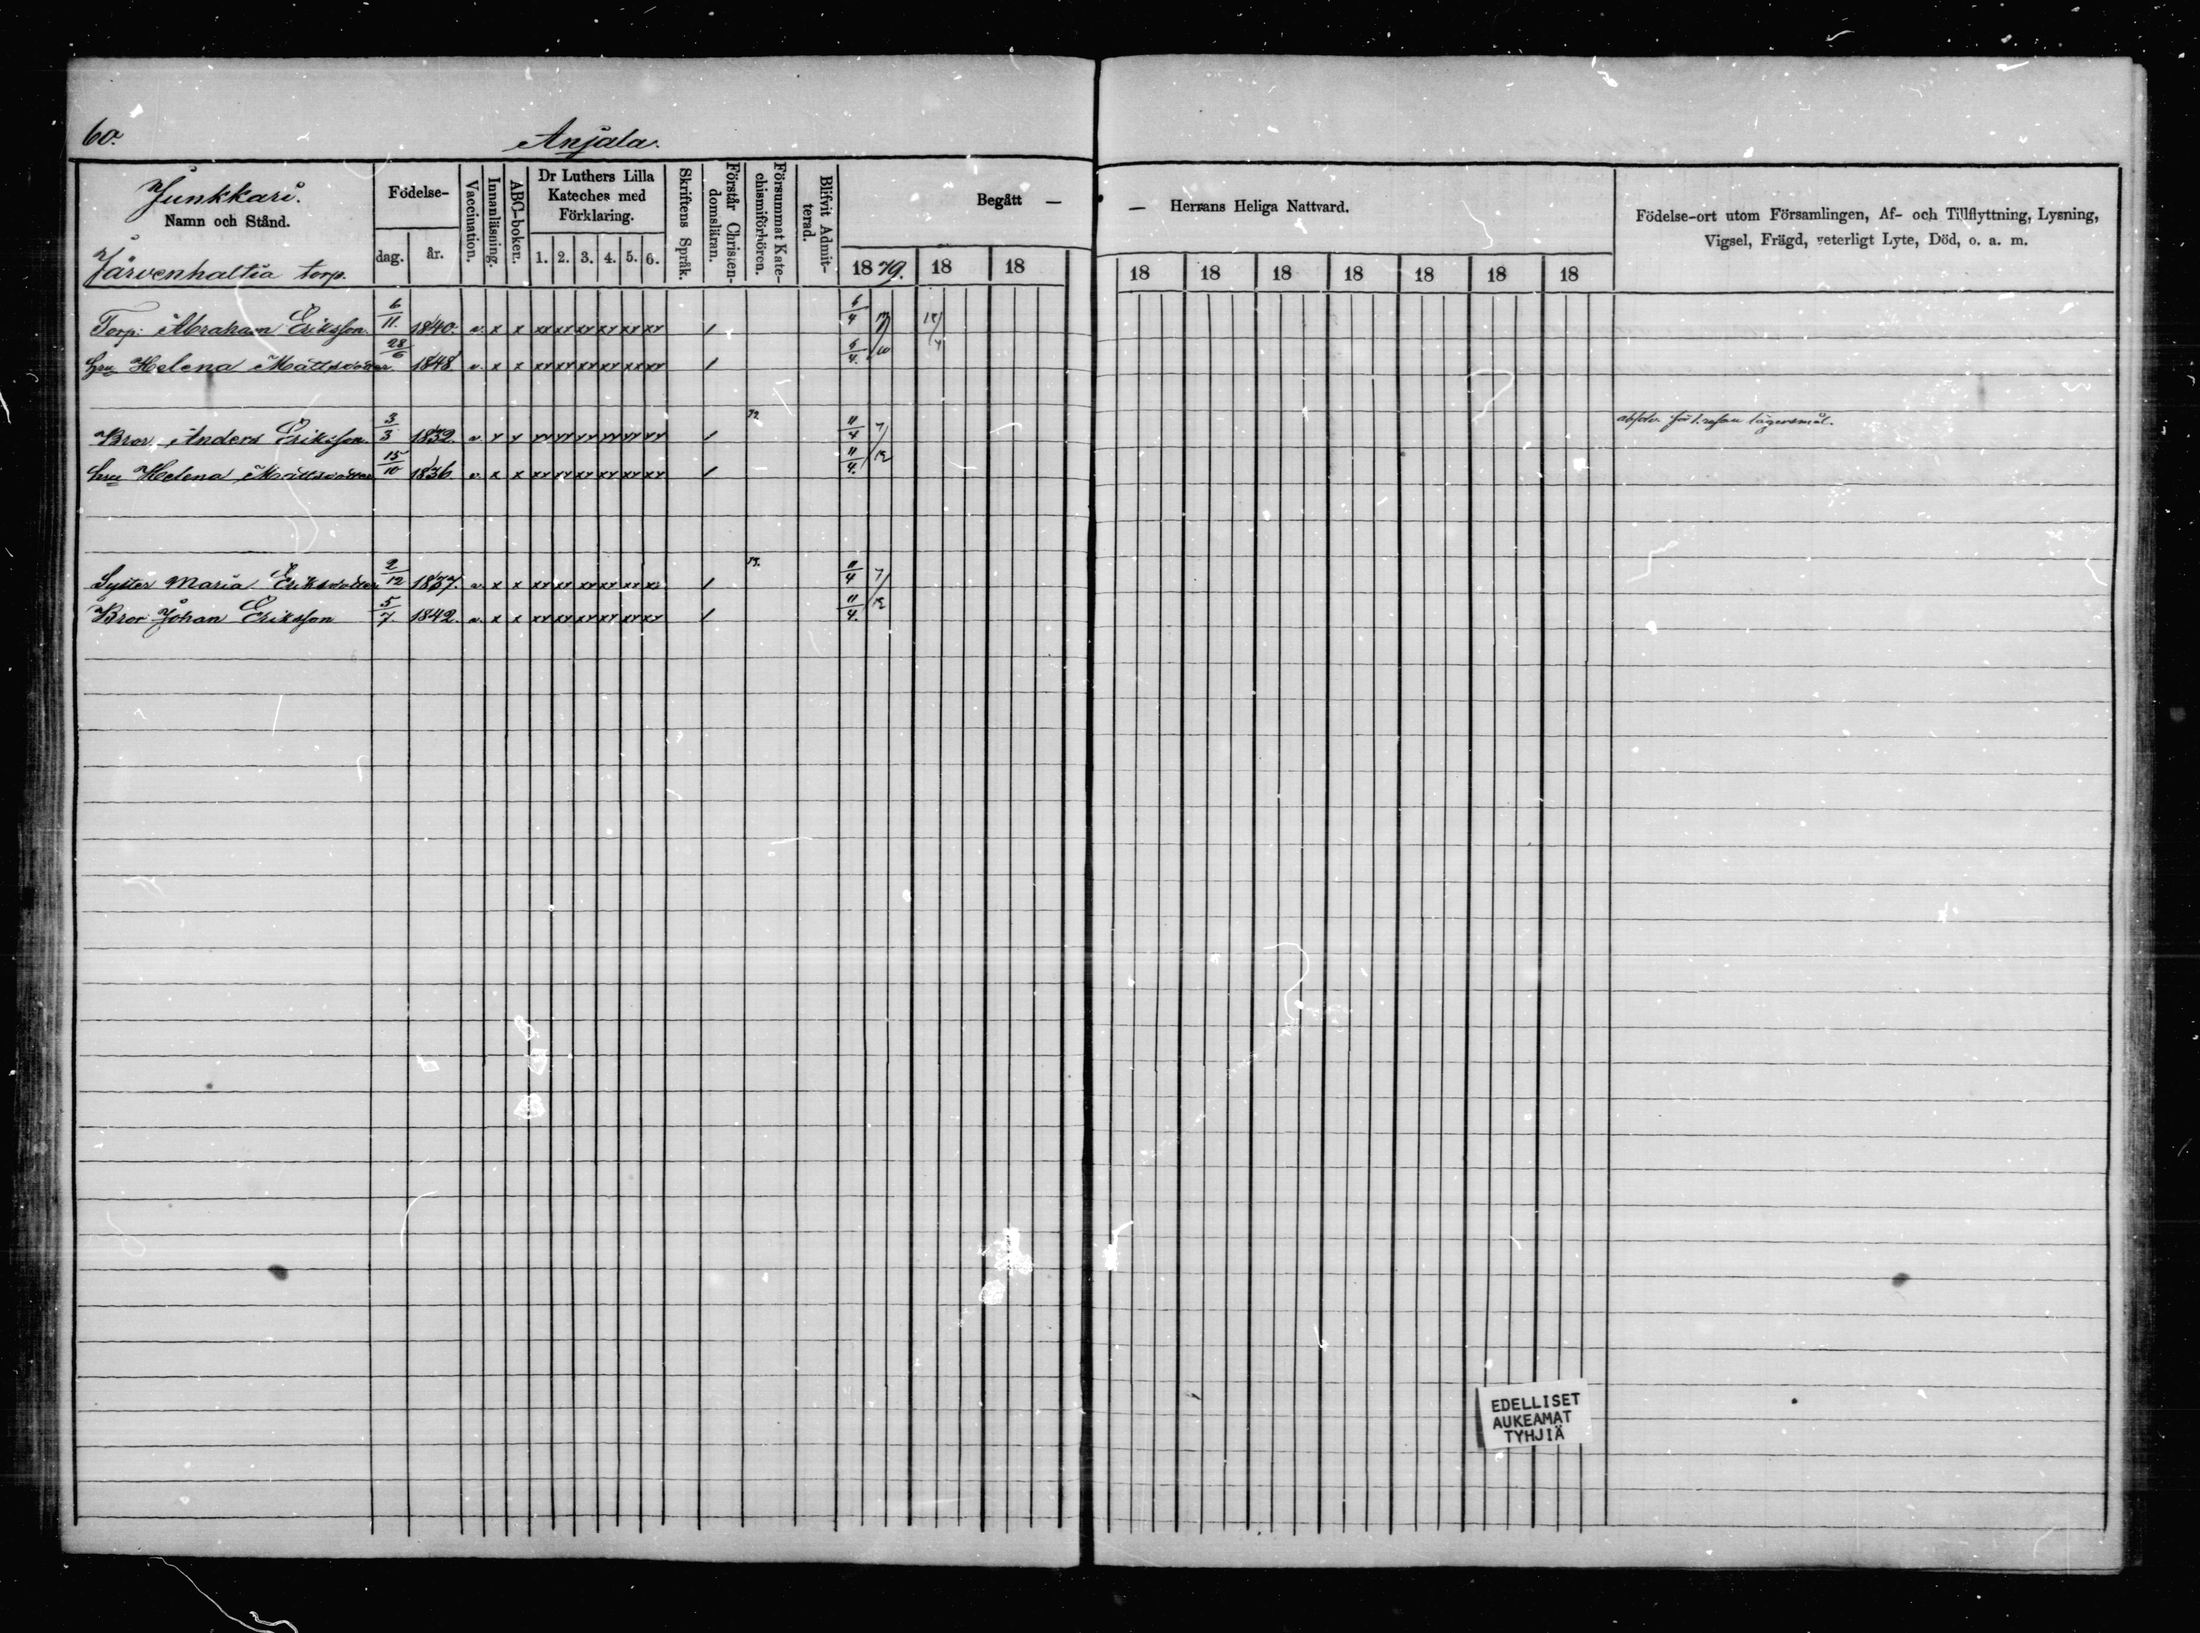 60.
Anjala.
Junkkari.
Namn och Stånd.
Järvenhaltia torp.
Födelse-
dag. år.
Vaccination.
Innanläsning.
ABC-boken.
Dr Luthers Lilla
Kateches med
Förklaring.
1. 2. 3. 4. 5. 6.
Skriftens Språk.
Förstår Christen-
domsläran.
Försummat Kate-
chismiförhören.
Blifvit Admit-
terad.
Begått —
1879. 18 18
— Herrans Heliga Nattvard.
18 18 18 18 18 18 18
Födelse-ort utom Församlingen, Af- och Tillflyttning, Lysning,
Vigsel, Frägd, veterligt Lyte, Död, o. a. m.
Torp: Abraham Eriksson. 6/11. 1840. v. x x xx xx xx xx xx xx / 6/4
Hu Helena Mattsdotter 28/6 1848 v. x x xx xx xx xx xx xx / 6/4.
Bror Anders Eriksson. 3/3 1832. v. x x xx xx xx xx xx xx / 79. 11/4 7/12
Hu Helena Mattsdotter 15/10 1836. v. x x xx xx xx xx xx xx / 11/4.
Syster Maria Eriksdotter 2/12 1837. v. x x xx xx xx xx xx xx / 79. 11/4 7/12
Bror Johan Eriksson 5/7. 1842. v. x x xx xx xx xx xx xx / 11/4.
lägersmål.
EDELLISET
AUKEAMAT
TYHJIÄ